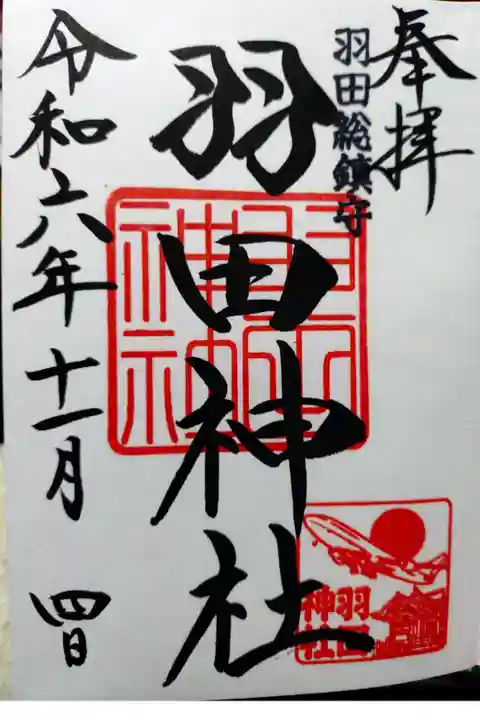 奉拝
羽田総鎮守
羽田神社
令和六年十一月 四日
羽田
神社